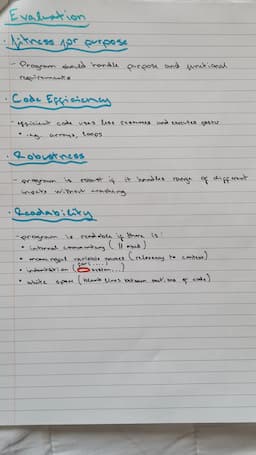 Evaluation
• fitness for purpose
- Program should handle purpose and functional
requirements
• Code Efficiency
- efficient code uses less resources and executes faster
• e.g. arrays, loops
• Robustness
- program is robust if it handles range of different
inputs without crashing
• Readability
- program is readable if there is:
• internal commentary ( // )
• meaningful variable names (relevancy to context)
for(....)
• indentation ( system...)
• white space (blank lines between sections of code)